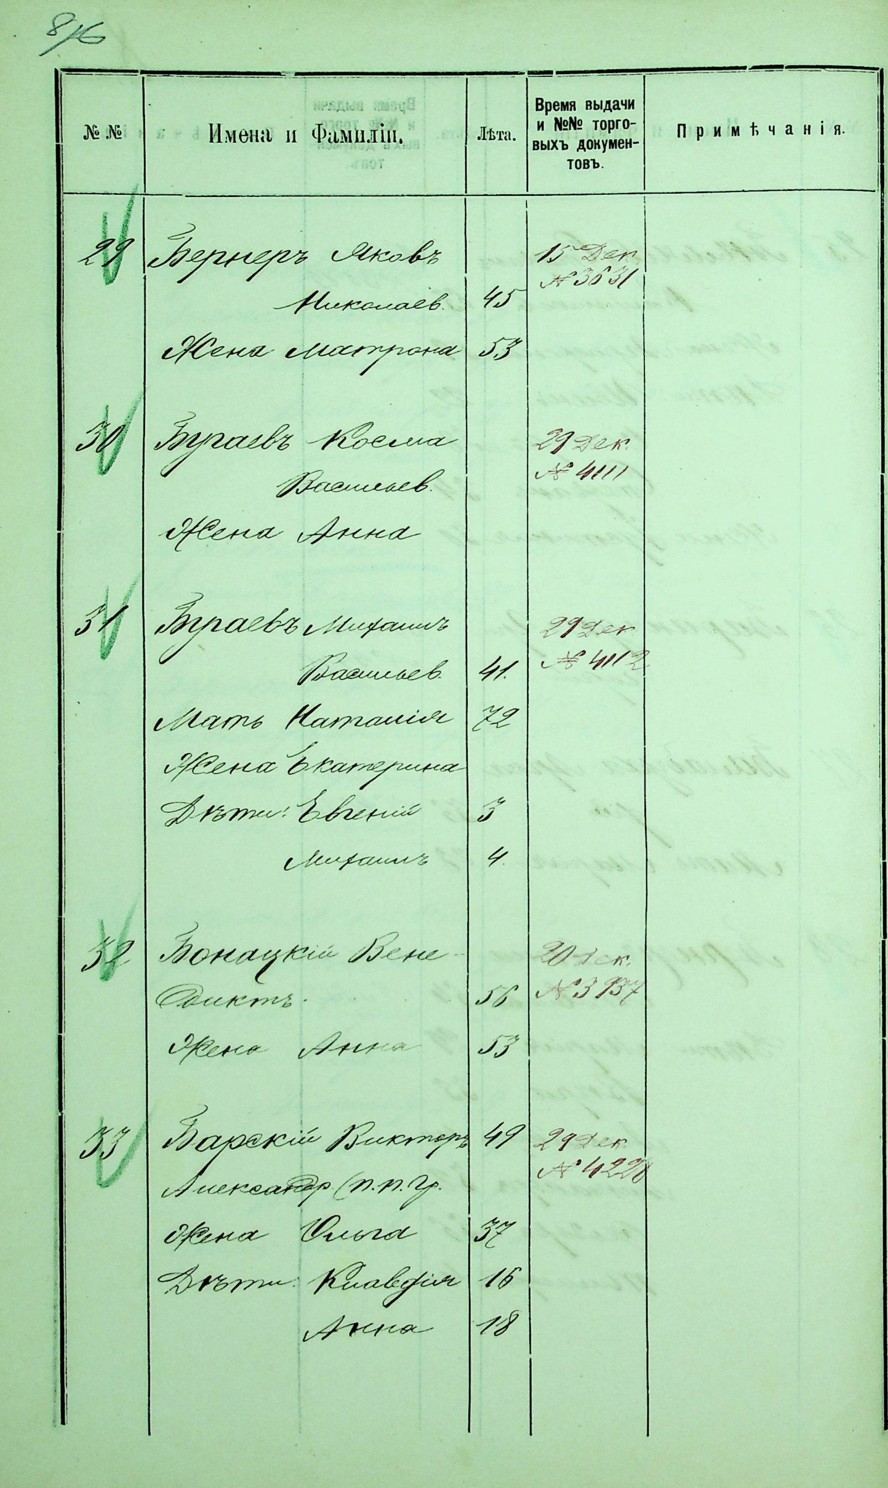 8/16
№ № Имена и Фамиліи. Лѣта. Время выдачи и №№ торго-выхъ докумен-товъ. Примѣчанія.
29 Бернеръ Яковъ 15 Дек
Николаев. 45 № 3631
Жена Матрона 53
30 Бугаевъ Косма 29 Дек.
Васильев. № 4111
Жена Анна
31 Бугаевъ Михаилъ 29 Дек
Васильев. 41. № 4112
Мать Наталія 72
Жена Екатерина
Дѣти: Евгеній 3
Михаилъ 4.
32 Бонацкій Вене- 20 Дек.
диктъ. 56 № 3937
Жена Анна 53
33 Барскій Викторъ 49 29 Дек
Александр (п.п.гр. № 4228
Жена Ольга 37
Дѣти: Клавдія 16
Анна 18